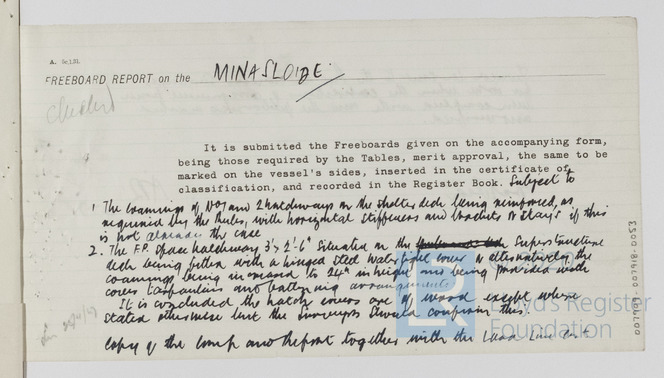 A. 5c.1.51.
FREEBOARD REPORT on the MINASLOIDE
Checked
It is submitted the Freeboards given on the accompanying form,
being those required by the Tables, merit approval, the same to be
marked on the vessel's sides, inserted in the certificate of
classification, and recorded in the Register Book. Subject to
1 The coamings of No1 and 2 hatchways on the shelter deck being reinforced, as
required by the Rules, with horizontal stiffeners and brackets or stays if this
is not already the case
2. The F.P. Space hatchway 3' 2'-6" situated on the Superstructure
deck being fitted with a hinged steel watertight cover or alternatively the
coamings being increased to 24" in height and being provided with
covers tarpaulins and battening arrangements.
It is concluded the hatch covers are of wood except where
stated otherwise but the Surveyors should confirm this.
Copy of the comp and Report together with the Load Line
Lloyd's Register
Foundation